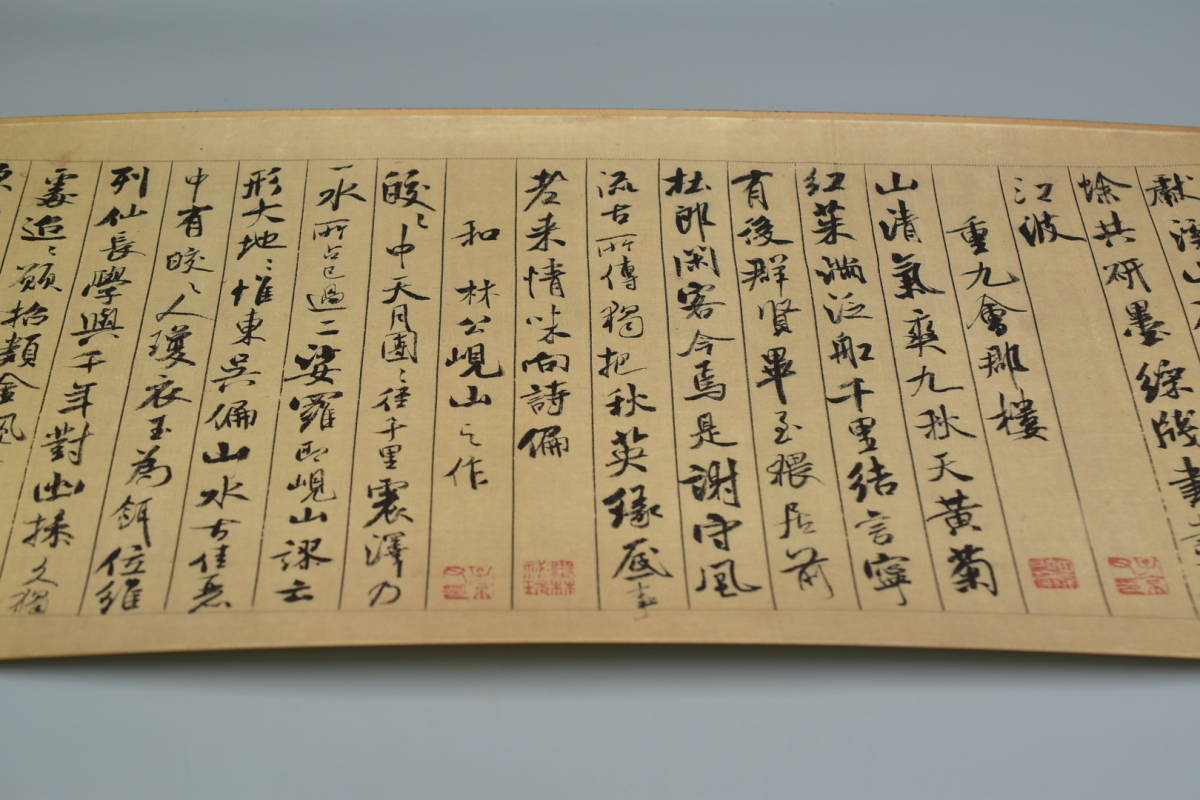 獻溪山
蜍共研墨綵牋書
江波
重九會郡樓
山清氣爽九秋天黃菊
紅茱滿泛船千里結言寧
有後群賢畢至猥居前
杜郎閑客今焉是謝守風
流古所傳獨把秋英緣底事
老來情味向詩偏
和林公峴山之作
皎〻中天月團〻徑千里震澤乃
一水所占已過二娑羅即峴山謬云
形大地〻惟東吳偏山水古佳麗
中有皎〻人瓊衣玉為餌位維
列仙長學與千年對幽操久獨
處迢〻願招類金